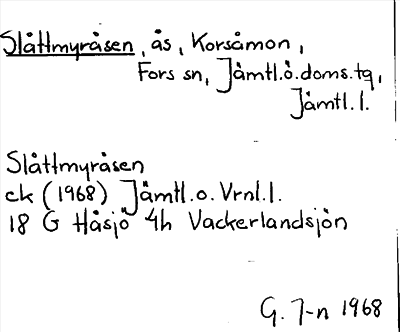 Slåttmyråsen, ås, Korsåmon,
Fors sn, Jämtl.ö.doms.tg,
Jämtl.l.
Slåttmyråsen
ek (1968) Jämtl.o.Vrnl.l.
18 G Håsjö 4h Vackerlandsjön
G. J-n 1968